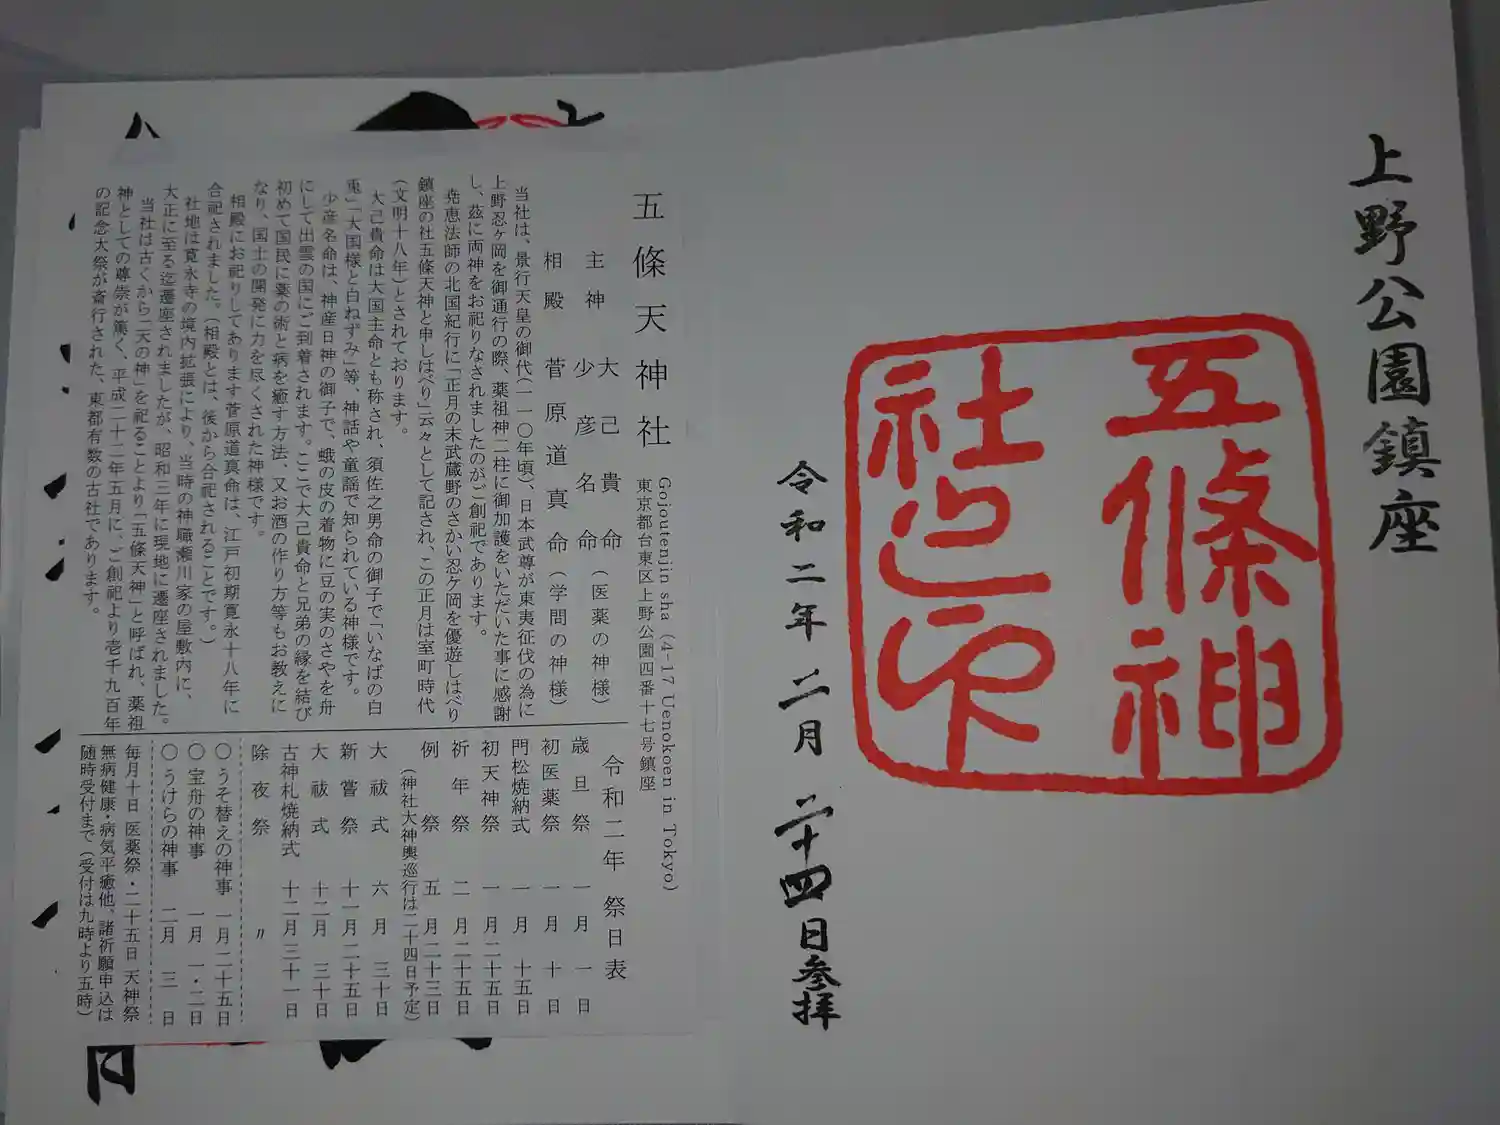 上野公園鎮座
五條神
社之印
令和二年二月二十四日参拝
五條天神社
Gojoutenjin sha (4-17 Uenokoen in Tokyo)
東京都台東区上野公園四番十七号鎮座
主神 大己貴命
少彦名命 (医薬の神様)
相殿 菅原道真命 (学問の神様)
当社は、景行天皇の御代(一一〇年頃)、日本武尊が東夷征伐の為に
上野忍ヶ岡を御通行の際、薬祖神二柱に御加護をいただいた事に感謝
し、茲に両神をお祀りなされましたのがご創祀であります。
尭恵法師の北国紀行に「正月の末武蔵野のさかい忍ヶ岡を優遊しはべり
鎮座の社五條天神と申しはべり」云々として記され、この正月は室町時代
(文明十八年)とされております。
大己貴命は大国主命とも称され、須佐之男命の御子で「いなばの白
兎」「大国様と白ねずみ」等、神話や童謡で知られている神様です。
少彦名命は、神産日神の御子で、蛾の皮の着物に豆の実のさやを舟
にして出雲の国にご到着されます。ここで大己貴命と兄弟の縁を結び
初めて国民に薬の術と病を癒す方法、又お酒の作り方等もお教えに
なり、国土の開発に力を尽くされた神様です。
相殿にお祀りしてあります菅原道真命は、江戸初期寛永十八年に
合祀されました。(相殿とは、後から合祀されることです。)
社地は寛永寺の境内拡張により、当時の神職瀬川家の屋敷内に、
大正に至る迄遷座されましたが、昭和三年に現地に遷座されました。
当社は古くから二天の神」を祀ることより「五條天神」と呼ばれ、薬祖
神としての尊崇が篤く、平成二十二年五月に、ご創祀より壱千九百年
の記念大祭が斎行された、東都有数の古社であります。
令和二年 祭日表
歳旦祭 一月一日
初医薬祭 一月十日
門松焼納式 一月十五日
初天神祭 一月二十五日
祈年祭 二月二十五日
例祭 五月二十三日
(神社大神輿巡行は二十四日予定)
大祓式 六月三十日
新嘗祭 十一月二十五日
大祓式 十二月三十日
古神札焼納式 十二月三十一日
除夜祭 〃
〇うそ替えの神事 一月二十五日
〇宝舟の神事 一月一・二日
〇うけらの神事 二月三日
毎月十日 医薬祭・二十五日 天神祭
無病健康・病気平癒他、諸祈願申込は
随時受付まで(受付は九時より五時)
月